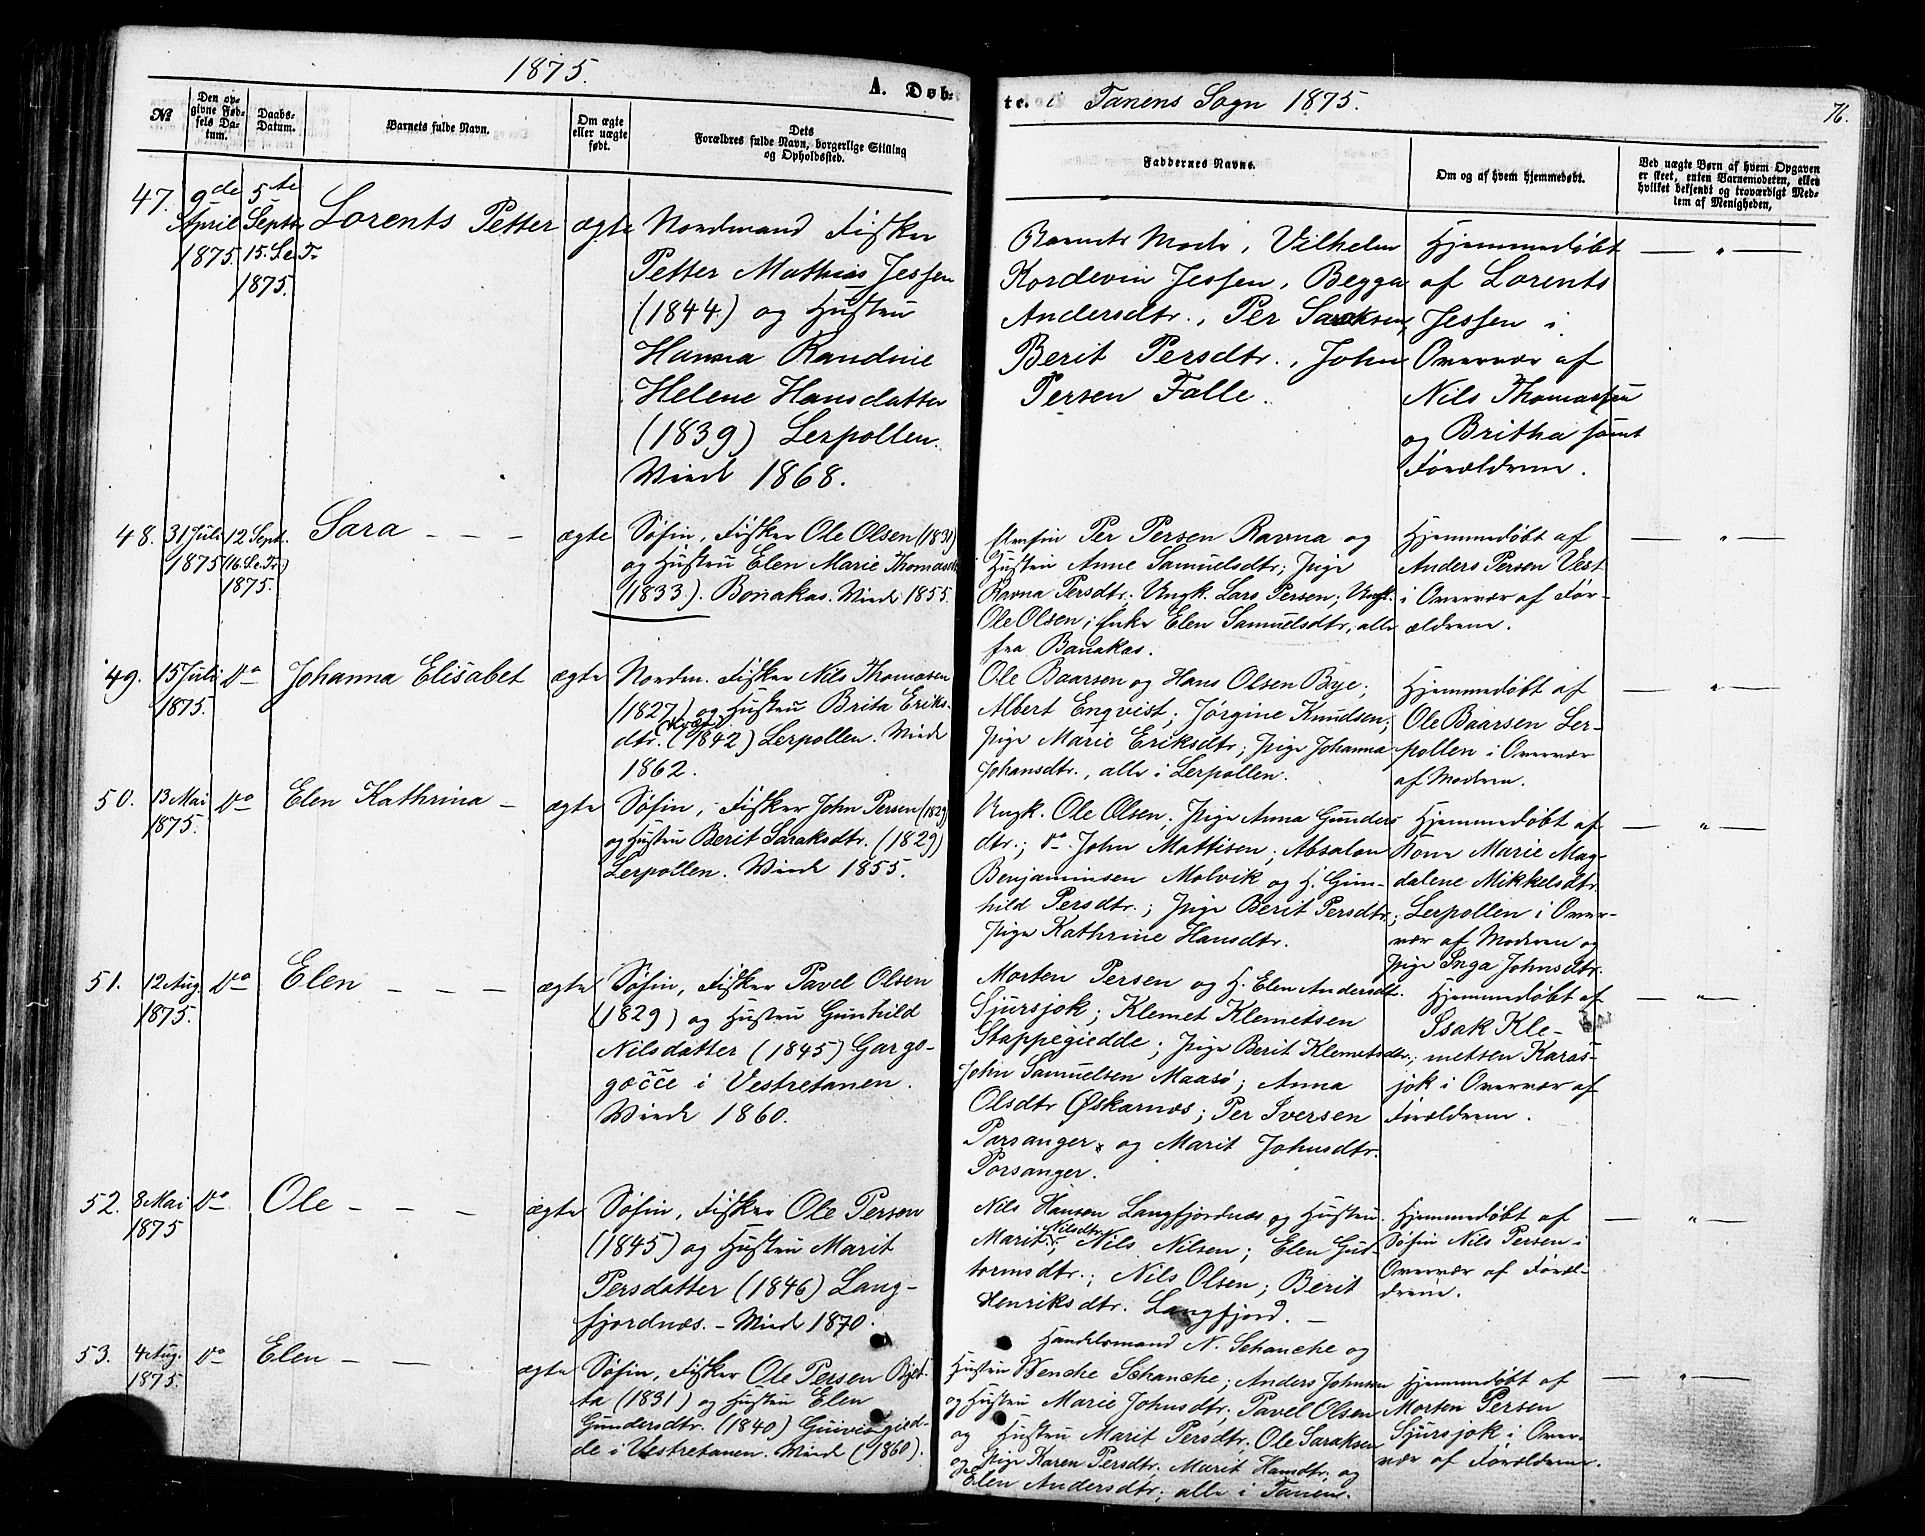 1875.
A. Døb-
te.
Tanens Sogn 1875.
76.
№
Den op-
givne Fød-
sels Da-
tum.
Daabs-
Datum.
Barnets fulde Navn.
Om ægte
eller uægte
født.
Dets
Forældres fulde Navn, borgerlige Stilling
og Opholdssted.
Faddernes Navne.
Om og af hvem hjemmedøbt.
Ved uægte Børn af hvem Opgaven
er skeet, enten Barnemoderen, eller
hvilket bekjendt og troværdigt Med-
lem af Menigheden,
47.
9de
April
1875
5te
Septbr
15. S.e.Tr.
1875.
Lorents Petter
ægte
Nordmand Fisker
Petter Mathias Jessen
(1844) og Hustru
Hanna Randine
Helene Hansdatter
(1839) Lerpollen.
Viede 1868.
Barnets Moder, Vilhelm
Kordevin Jessen, Begga
Andersdtr., Per Sarksen,
Berit Persdtr., John
Persen Falle.
Hjemmedøbt
af Lorents
Jessen i
Overvær af
Nils Thomassen
og Britha samt
Forældrene.
— " —
48.
31 Juli
1875
12 Sept.
(16. S.e.Tr.)
1875.
Sara - - -
ægte
Søfin, Fisker Ole Olsen (1831)
og Hustru Elen Marie Thomasdtr
(1833). Bonakas. Viede 1855.
Per Persen Ravna og
Hustru Anne Samuelsdtr; Pige
Ravna Persdtr; Ungk. Lars Persen; Ungk.
Ole Olsen; Enke Elen Samuelsdtr, alle
fra Bonakas.
Hjemmedøbt af
Anders Persen Vest
i Overvær af For-
ældrene.
— " —
49.
15 Juli
1875.
Do
Johanna Elisabet
ægte
Nordm. Fisker Nils Thomasen
(1827) og Hustru Brita Eriks-
dtr. (1842) Lerpollen. Viede
1862.
Ole Baarsen og Hans Olsen Bye;
Albert Enqvist; Jørgine Knudsen;
Pige Marie Eriksdtr; Pige Johanna
Johansdtr., alle i Lerpollen.
Hjemmedøbt af
Ole Baarsen Ler-
pollen i Overvær
af Moderen.
— " —
50.
13 Mai
1875.
Do
Elen Kathrina -
ægte
Søfin, Fisker John Persen (1829)
og Hustru Berit Saraksdtr. (1829)
Lerpollen. Viede 1855.
Ungk. Ole Olsen; Pige Anna Gunders
dtr.; Do. John Mattisen; Absalon
Benjaminsen Molvik og H. Gun-
hild Persdtr.; Pige Berit Persdtr;
Pige Kathrine Hansdtr.
Hjemmedøbt af
Kone Marie Mag-
dalene Mikkelsdtr.
Lerpollen i Over-
vær af Moderen og
Pige Inga Johnsdtr.
— " —
51.
12 Aug.
1875.
Do
Elen - - -
ægte
Søfin, Fisker Pavel Olsen
(1829) og Hustru Gunhild
Nilsdatter (1845) Gargo-
gæčče i Vestretanen.
Viede 1860.
Morten Persen og H. Elen Andersdt.
Sjursjok; Klemet Klemetsen
Stappegiedde; Pige Berit Klemetsdtr.;
John Samuelsen Maasø; Anna
Olsdtr Øskarnæs; Per Iversen
Porsanger, og Marit Johnsdtr.
Porsanger.
Hjemmedøbt af
Isak Kle-
metsen Karas-
jok i Overvær af
Forældrene.
— " —
52.
8 Mai
1875
Do
Ole - - -
ægte
Søfin, Fisker Ole Persen
(1845) og Hustru Marit
Persdatter (1846) Lang-
fjordnæs. - Viede 1870.
Nils Hansen Langfjordnæs og Hustru
Marit Nilsdtr.; Nils Nilsen; Elen Gut-
tormsdtr.; Nils Olsen; Berit
Henriksdtr. Langfjord. -
Hjemmedøbt af
Søfin Nils Persen i
Overvær af Foræl-
drene.
— " —
53.
4 Aug.
1875.
Do
Elen - -
ægte
Søfin, Fisker Ole Persen Bjet-
ta (1831) og Hustru Elen
Gundersdtr. (1840) Guivigied-
de i Vestretanen. Viede (1860).
Handelsmand N. Schanche og
Hustru Wenche Schanche; Anders Johnsen
og Hustru Marie Johnsdtr; Pavel Olsen
og Hustru Marit Persdtr; Ole Saraksen
og Pige Karen Persdtr; Marit Hansdtr; og
Elen Andersdtr; alle i Tanen.
Hjemmedøbt af
Morten Persen
Sjursjok i Over-
vær af Forældrene.
— " —